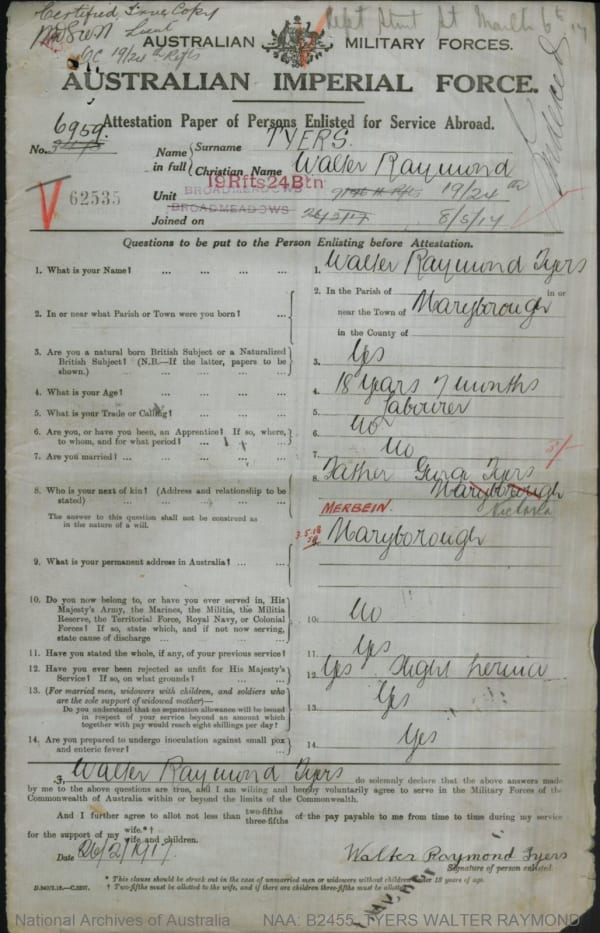 Certified True Copy
Lieut
OC 19/24th Rfts
AUSTRALIAN MILITARY FORCES.
AUSTRALIAN IMPERIAL FORCE.
Attestation Paper of Persons Enlisted for Service Abroad.
No. 6959
Name in full { Surname TYERS.
Christian Name Walter Raymond
19Rfts24Btn
62535
Unit BROADMEADOWS 19/24
BROADMEADOWS
Joined on 26/2/17 8/5/17
Questions to be put to the Person Enlisting before Attestation.
1. What is your Name? ... ... ... ... 1. Walter Raymond Tyers
2. In or near what Parish or Town were you born? ... 2. In the Parish of in or
near the Town of Maryborough
in the County of
3. Are you a natural born British Subject or a Naturalized British Subject? (N.B.—If the latter, papers to be shown.) ... ... ... ... 3. Yes
4. What is your Age? ... ... ... ... 4. 18 years 7 months
5. What is your Trade or Calling? ... ... ... 5. Labourer
6. Are you, or have you been, an Apprentice? If so, where, to whom, and for what period? ... ... ... 6. No
7. Are you married? ... ... ... ... 7. No
8. Who is your next of kin? (Address and relationship to be stated) ... ... ... ... 8. Father George Tyers
Maryborough
MERBEIN. Victoria
The answer to this question shall not be construed as in the nature of a will.
3.5.18
9. What is your permanent address in Australia? ... ... Maryborough
10. Do you now belong to, or have you ever served in, His Majesty's Army, the Marines, the Militia, the Militia Reserve, the Territorial Force, Royal Navy, or Colonial Forces? If so, state which, and if not now serving, state cause of discharge ... ... ... 10. No
11. Have you stated the whole, if any, of your previous service? 11. Yes
12. Have you ever been rejected as unfit for His Majesty's Service? If so, on what grounds? ... ... 12. Yes Slight hernia
13. (For married men, widowers with children, and soldiers who are the sole support of widowed mother)—
Do you understand that no separation allowance will be issued in respect of your service beyond an amount which together with pay would reach eight shillings per day? 13. Yes
14. Are you prepared to undergo inoculation against small pox and enteric fever? ... ... ... 14. Yes
I, Walter Raymond Tyers do solemnly declare that the above answers made
by me to the above questions are true, and I am willing and hereby voluntarily agree to serve in the Military Forces of the
Commonwealth of Australia within or beyond the limits of the Commonwealth.
And I further agree to allot not less than two-fifths three-fifths of the pay payable to me from time to time during my service
for the support of my wife.*† wife and children.
Date 26/2/1917. Walter Raymond Tyers
Signature of person enlisted.
* This clause should be struck out in the case of unmarried men or widowers without children under 18 years of age.
† Two-fifths must be allotted to the wife, and if there are children three-fifths must be allotted.
National Archives of Australia NAA: B2455, TYERS WALTER RAYMOND